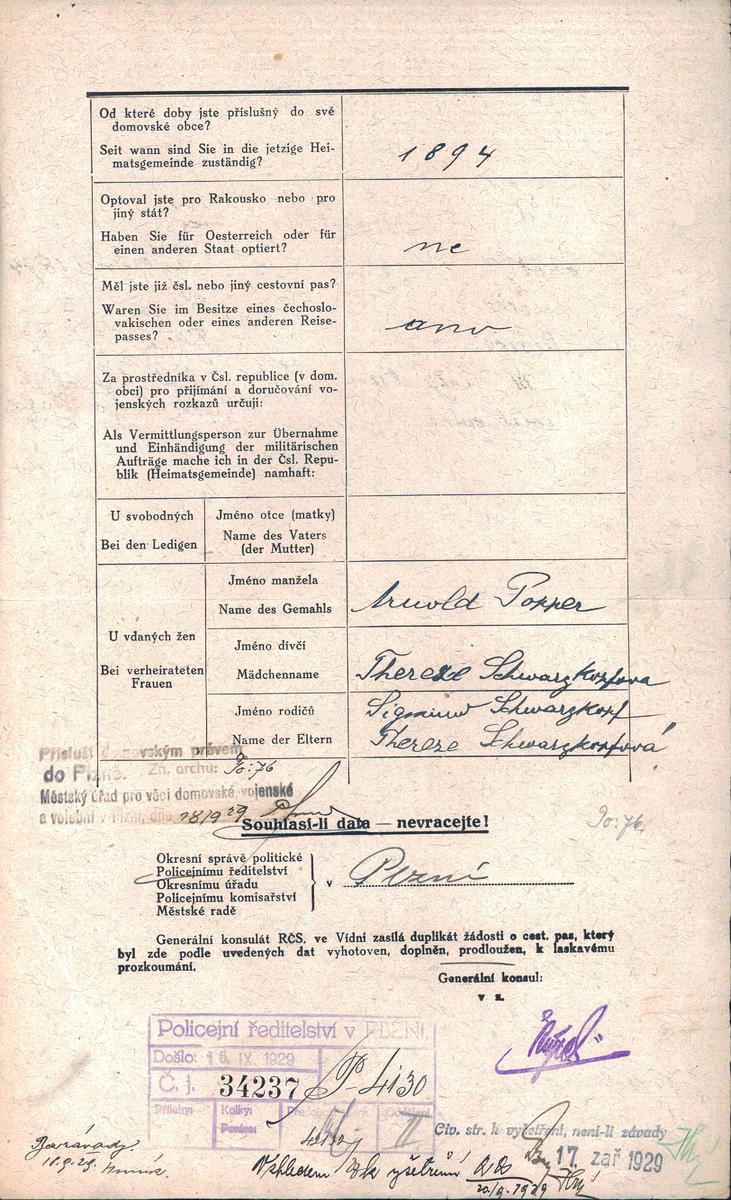 Od které doby jste příslušný do své
domovské obce?
Seit wann sind Sie in die jetzige Hei-
matsgemeinde zuständig?
1894
Optoval jste pro Rakousko nebo pro
jiný stát?
Haben Sie für Oesterreich oder für
einen anderen Staat optiert?
ne
Měl jste již čsl. nebo jiný cestovní pas?
Waren Sie im Besitze eines čechoslo-
vakischen oder eines anderen Reise-
passes?
ano
Za prostředníka v Čsl. republice (v dom.
obci) pro přijímání a doručování vo-
jenských rozkazů určuji:
Als Vermittlungsperson zur Übernahme
und Einhändigung der militärischen
Aufträge mache ich in der Čsl. Repu-
blik (Heimatsgemeinde) namhaft:
U svobodných
Bei den Ledigen
Jméno otce (matky)
Name des Vaters
(der Mutter)
U vdaných žen
Bei verheirateten
Frauen
Jméno manžela
Name des Gemahls
Arnold Popper
Jméno dívčí
Mädchenname
Therese Schwarzkopfova
Jméno rodičů
Name der Eltern
Sigmund Schwarzkopf
Therese Schwarzkopfová
Přísluší domovským právem
do Plzně. Zn. archu: Po:76
Městský úřad pro věci domovské, vojenské
a volební v Plzni, dne 18/9 29
Souhlasí-li data — nevracejte!
Po:76.
Okresní správě politické
Policejnímu ředitelství
Okresnímu úřadu
Policejnímu komisařství
Městské radě
v Plzni
Generální konsulát RČS. ve Vídni zasílá duplikát žádosti o cest. pas, který
byl zde podle uvedených dat vyhotoven, doplněn, prodloužen, k laskavému
prozkoumání.
Generální konsul:
v z.
Policejní ředitelství v PLZNI.
Došlo: 16. IX. 1929
Č. j. 34237
P-4130
Přílohy:
Kolky:
Oddělení
II
Civ. str. k vyšetření, není-li závady
17. zář 1929
Bez závady.
18.9.29.
Vzhledem k vyšetření
20/9. 1929